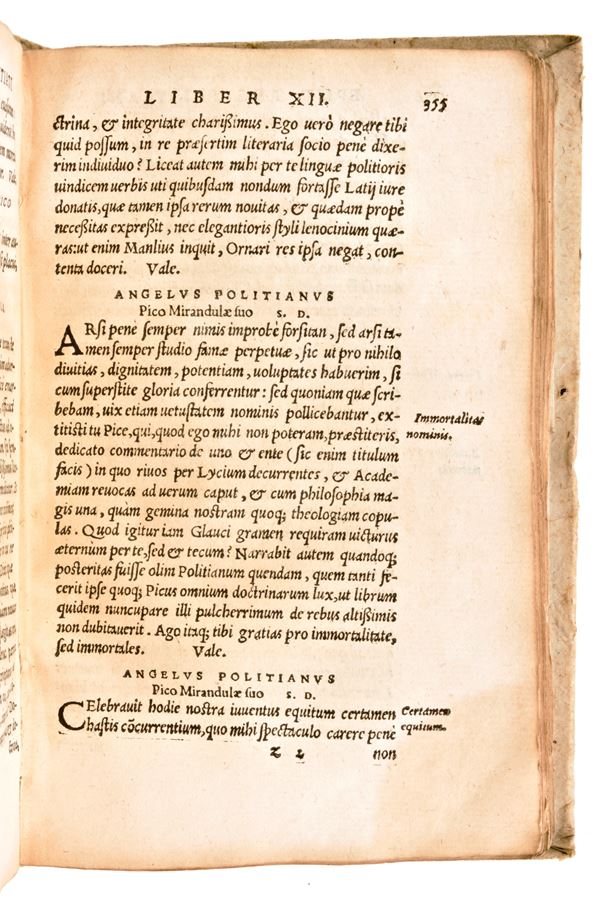 LIBER XII. 355
ctrina, & integritate charißimus. Ego uerò negare tibi
quid poſſum, in re præſertim literaria ſocio penè dixe-
rim indiuiduo? Liceat autem mihi per te linguæ politioris
uindicem uerbis uti quibuſdam nondum fortaſſe Latij iure
donatis, quæ tamen ipſa rerum nouitas, & quædam propè
neceßitas expreßit, nec elegantioris ſtyli lenocinium quæ-
ras: ut enim Manlius inquit, Ornari res ipſa negat, con-
tenta doceri. Vale.
ANGELVS POLITIANVS
Pico Mirandulæ ſuo S. D.
ARſi penè ſemper nimis improbè forſitan, ſed arſi ta-
men ſemper ſtudio famæ perpetuæ, ſic ut pro nihilo
diuitias, dignitatem, potentiam, uoluptates habuerim, ſi
cum ſuperſtite gloria conferrentur: ſed quoniam quæ ſcri-
bebam, uix etiam uetuſtatem nominis pollicebantur, ex-
Immortalitas
titiſti tu Pice, qui, quod ego mihi non poteram, præſtiteris,
nominis.
dedicato commentario de uno & ente (ſic enim titulum
facis) in quo riuos per Lycium decurrentes, & Acade-
miam reuocas ad uerum caput, & cum philoſophia ma-
gis una, quàm gemina noſtram quoq; theologiam copu-
las. Quod igitur iam Glauci gramen requiram uicturus
æternum per te, ſed & tecum? Narrabit autem quandoq;
poſteritas fuiſſe olim Politianum quendam, quem tanti fe-
cerit ipſe quoq; Picus omnium doctrinarum lux, ut librum
quidem nuncupare illi pulcherrimum de rebus altißimis
non dubitauerit. Ago itaq; tibi gratias pro immortalitate,
ſed immortales. Vale.
ANGELVS POLITIANVS
Pico Mirandulæ ſuo S. D.
CElebrauit hodie noſtra iuuentus equitum certamen
Certamen
haſtis cōcurrentium, quo mihi ſpectaculo carere penè
equitum.
Z 2 non